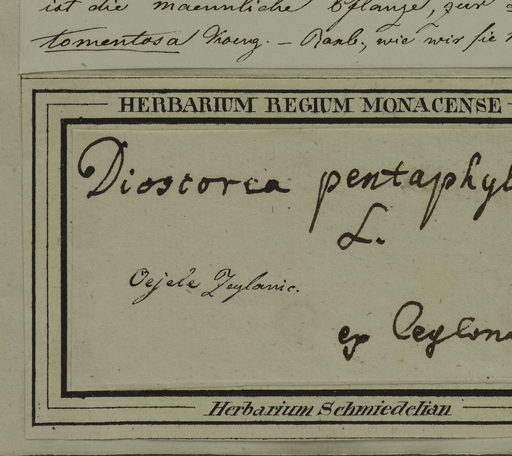 ist die maennliche Pflanze, zur
tomentosa Koenig. – Roxb., wie wir sie
HERBARIUM REGIUM MONACENSE
Dioscorea pentaphyl
L.
Oejele Zeylanic.
ex Ceylona
Herbarium Schmiedelian